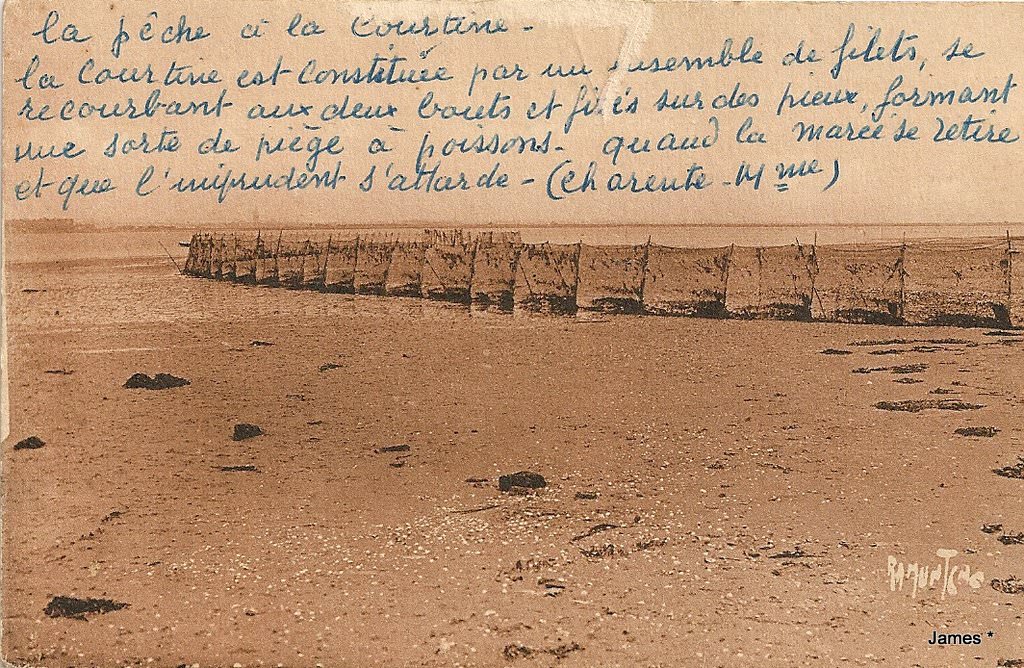 la pêche à la Courtine -
la Courtine est Constituée par un ensemble de filets, se
recourbant aux deux bouts et fixés sur des pieux, formant
une sorte de piège à poissons - quand la marée se retire
et que l'imprudent s'attarde - (Charente - Mme)
RAMUNTCHO
James *